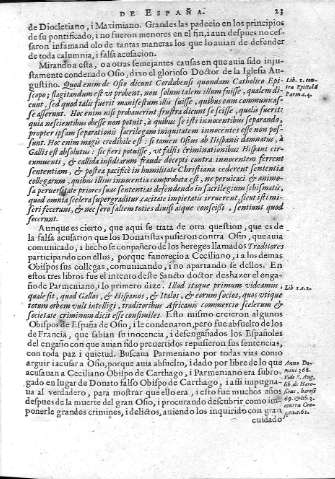 DE ESPAÑA. 23
de Diocletiano, i Maximiano. Grandes las padecio en los principios
de su pontificado, i no fueron menores en el fin, i aun despues no ces-
saron infamandolo de tantas maneras los que lo auian de defender
de toda calumnia, i falsa acusacion.
Mirando a esta, o a otras semejantes causas en que auia sido inju-
stamente condenado Osio, dixo el glorioso Doctor de la Iglesia Au-
gustino. Quod enim de Osio dicunt Cordubensi quondam Catholico Epi-
scopo; flagitandum est vt probent, non solum talem illum fuisse, qualem di-
cunt, sed quod talis fuerit manifestum illis fuisse, quibus eum communicas-
se asserunt. Hoc enim nisi probauerint frustra dicunt se scisse, quales fuerit
quia nescientibus obesse non potuit, à quibus se isti innocentibus separando,
propter ipsum separationis sacrilegam iniquitatem innocentes esse non pos-
sunt. Hoc enim magis credibile est: si tamen Osius ab Hispanis damnatus, à
Gallis est absolutus: sic fieri potuisse, vt falsis criminationibus Hispani cir-
cumuenti, & callida insidiarum fraude decepti contra innocentem ferrent
sententiam, & postea pacifice in humilitate Christiana cederent sententia
collegarum, quibus illius innocentia comprobata est, ne peruicaci & animo-
sa peruersitate priores suas sententias defendendo in sacrilegium schismatis,
quod omnia scelera supergraditur cæcitate impietatis irruerent, sicut isti mi-
seri fecerunt, & nec sero saltem
Aunque es cierto, que aqui se trata de otra question, que es de
la falsa acusacion que los Donatistas pusieron contra Osio, que auia
comunicado, i hecho se compañero de los hereges llamados Traditores
participando con ellos, porque fauorecio a Ceciliano, i a los demas
Obispos sus collegas, comunicando, i no apartando se dellos. En
estos tres libros fue el intento deste Sancto doctor deshazer el enga-
ño de Parmeniano, i lo primero dize. Illud itaque primum videamus,
quale sit, quod Gallos, & Hispanos, & Italos, & eorum socios, quos vtique
totum orbem vult intelligi, traditoribus Africanis commercio scelerum &
societate criminum dicit esse consimiles. Esto mismo creieron algunos
Obispos de España de Osio, i le condenaron, pero fue absuelto de los
de Francia, que sabian su inocencia, i desengañados los Españoles
del engaño con que auian sido preuertidos repusieron sus sentencias,
con toda paz i quietud. Buscaua Parmeniano por todas vias como
arguir i acusar a Osio, porque auia absuelto, i dado por libre de lo que
acusauan a Ceciliano Obispo de Carthago, i Parmeniano era subro-
gado en lugar de Donato falso Obispo de Carthago, i assi impugna-
ua al verdadero, para mostrar que ello era, i esto fue muchos años
despues de la muerte del gran Osio, i procurando descubrir como im-
ponerle grandes crimines, i delictos, autiendo los inquirido con gran
cuidado
Lib. 1. contra
Lib. 1. c. 2.
Anno Do-
mini 368.